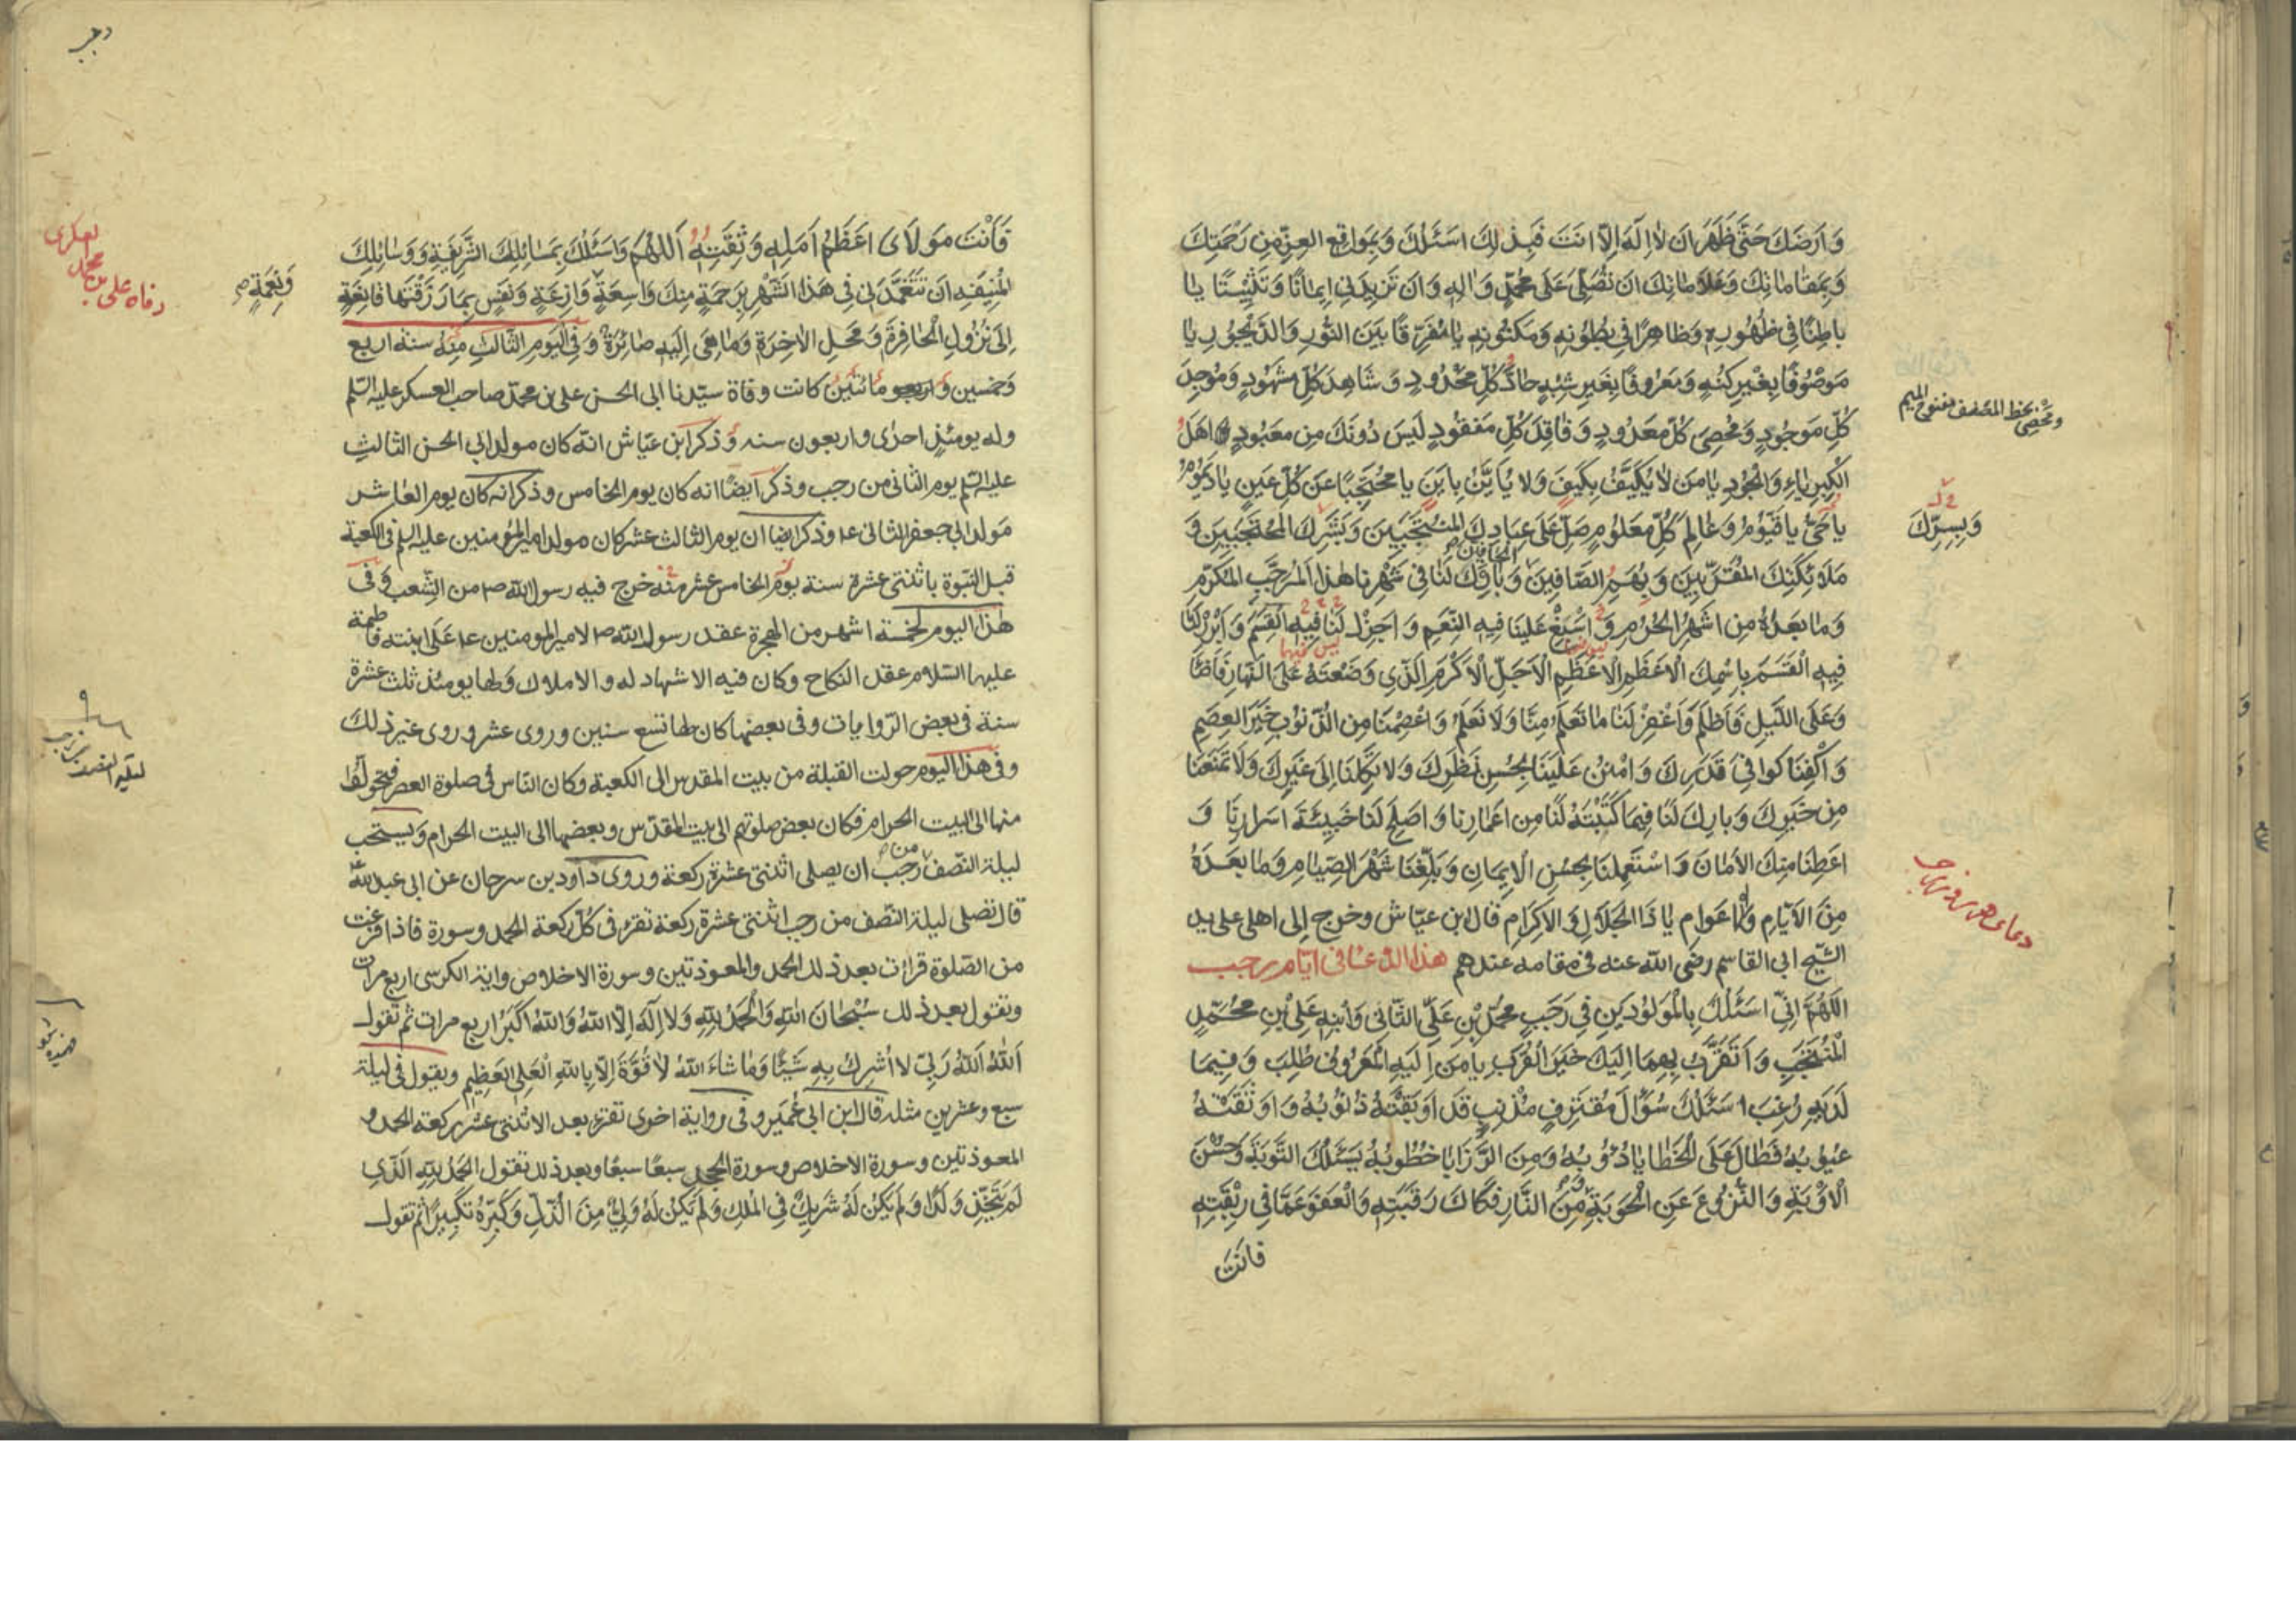 وَاَرضَكَ حَتّى ظَهَرَ اَن لا اِلهَ اِلّا انتَ فَبِذلِكَ اَسئَلُكَ وَبِمَواقِعِ العِزِّ مِن رَحمَتِكَ
وَبِمَقاماتِكَ وَعَلاماتِكَ اَن تُصَلّيَ عَلى مُحَمَّدٍ وَالِهِ وَاَن تَزيدَني ايمانًا وَتَثبيتًا يا
باطِنًا في ظُهُورِهِ وَظاهِرًا في بُطُونِهِ وَمَكنُونِهِ يا مُفَرِّقًا بَينَ النُّورِ وَالدَّيجُورِ يا
مَوصُوفًا بِغَيرِ كُنهٍ وَمَعرُوفًا بِغَيرِ شِبهٍ حادَّ كُلِّ مَحدُودٍ وَشاهِدَ كُلِّ مَشهُودٍ وَمُوجِدَ
كُلِّ مَوجُودٍ وَمُحصِيَ كُلِّ مَعدُودٍ وَفاقِدَ كُلِّ مَفقُودٍ لَيسَ دُونَكَ مِن مَعبُودٍ اَهلَ
ومَحْصِيَ بخط المصنف بفتح الميم
الكِبرِياءِ وَالجُودِ يا مَن لا يُكَيَّفُ بِكَيفٍ وَلا يُاَيَّنُ بِاَينٍ يا مُحتَجِبًا عَن كُلِّ عَينٍ يا دَيمُومُ
يا حَيُّ يا قَيُّومُ وَعالِمَ كُلِّ مَعلُومٍ صَلِّ عَلى عِبادِكَ المُنتَجَبينَ وَبَشَرِكَ المُحتَجِبينَ وَ
وَبِسِرِّكَ
مَلائِكَتِكَ المُقَرَّبينَ وَبُهَمِ الصّافّينَ الحافّينَ وَبارِك لَنا في شَهرِنا هذَا المُرَجَّبِ المُكَرَّمِ
وَما بَعدَهُ مِن اَشهُرِ الحُرُمِ وَاَسبِغ عَلَينا فيهِ النِّعَمِ وَاَجزِل لَنا فيهِ القِسَمَ وَاَبرِر لَنا
فيهِ القَسَمَ بِاسمِكَ الاَعظَمِ الاَعظَمِ الاَجَلِّ الاَكرَمِ الَّذي وَضَعتَهُ عَلَى النَّهارِ فَاَضاءَ
وَعَلَى اللَّيلِ فَاَظلَمَ وَاغفِر لَنا ما تَعلَمُ مِنّا وَلا نَعلَمُ وَاعصِمنا مِنَ الذُّنُوبِ خَيرَ العِصَمِ
وَاكفِنا كَوافِيَ قَدَرِكَ وَامنُن عَلَينا بِحُسنِ نَظَرِكَ وَلا تَكِلنا اِلى غَيرِكَ وَلا تَمنَعنا
مِن خَيرِكَ وَبارِك لَنا فيما كَتَبتَهُ لَنا مِن اَعمارِنا وَاَصلِح لَنا خَبيئَةَ اَسرارِنا وَ
اَعطِنا مِنكَ الاَمانَ وَاستَعمِلنا بِحُسنِ الايمانِ وَبَلِّغنا شَهرَ الصِّيامِ وَما بَعدَهُ
مِنَ الاَيّامِ وَالاَعوامِ يا ذَا الجَلالِ وَالاِكرامِ قال ابن عيّاش وخرج الى اهلى على يد
دعاى هر روز رجب
الشيخ ابى القاسم رضى الله عنه فى مقامه عندهم هذا الدعاء فى ايّام رجب
اللّهُمَّ اِنّي اَسئَلُكَ بِالمَولُودَينِ في رَجَبٍ مُحَمَّدِ بنِ عَلِيٍّ الثّاني وَابنِهِ عَلِيِّ بنِ مُحَمَّدٍ
المُنتَجَبِ وَاَتَقَرَّبُ بِهِما اِلَيكَ خَيرَ القُرَبِ يا مَن اِلَيهِ المَعرُوفُ طُلِبَ وَفيما
لَدَيهِ رُغِبَ اَسئَلُكَ سُؤالَ مُقتَرِفٍ مُذنِبٍ قَد اَوبَقَتهُ ذُنُوبُهُ وَاَوثَقَتهُ
عُيُوبُهُ فَطالَ عَلَى الخَطايا دُؤُبُهُ وَمِنَ الرَّزايا خُطُوبُهُ يَسئَلُكَ التَّوبَةَ وَحُسنَ
الاَوبَةِ وَالنُّزُوعَ عَنِ الحَوبَةِ وَمِنَ النّارِ فَكاكَ رَقَبَتِهِ وَالعَفوَ عَمّا في رِبقَتِهِ
فانت
فَاَنتَ مَولايَ اَعظَمُ اَمَلِهِ وَثِقَتِهِ اَللّهُمَّ وَاَسئَلُكَ بِمَسائِلِكَ الشَّريفَةِ وَوَسائِلِكَ
المُنيفَةِ اَن تَتَغَمَّدَني في هذَا الشَّهرِ بِرَحمَةٍ مِنكَ واسِعَةٍ وازِعَةٍ وَنَفسٍ بِما رَزَقتَها قانِعَةٍ
وَنِعمَةٍ
وفاة على بن محمد العسكرى
اِلى نُزُولِ الحافِرَةِ وَمَحَلِّ الاخِرَةِ وَما هِيَ اِلَيهِ صائِرَةٌ وَفى اليَوم الثّالث مِنهُ سنة اربع
وخمسين ومائتين كانت وفاة سيّدنا ابى الحسن على بن محمّد صاحب العسكر عليه السّلم
وله يومئذٍ احدى واربعون سنه وذكر ابن عيّاش انّه كان مولد ابي الحسن الثالث
عليه السّلم يوم الثانى من رجب وذكر ايضًا انه كان يوم الخامس وذكر انه كان يوم العاشر
مولد ابي جعفر الثانى ع وذكر ايضا ان يوم الثالث عشر كان مولد امير المؤمنين عليه السلم فى الكعبة
قبل النبّوة باثنتى عشرة سنة يوم الخامس عشر منه خرج فيه رسول الله ص من الشّعب وفى
هذا اليوم لخمسة اشهر من الهجرة عقد رسول الله ص لامير المومنين ع على ابنته فاطمة
عليهما السّلام عقد النكاح وكان فيه الاشهاد له والاملاك ولها يومئذ ثلث عشرة
سنة فى بعض الرّوايات وفى بعضها كان لها تسع سنين وروى عشر وروى غير ذلك
وفى هذا اليوم حولت القبلة من بيت المقدس الى الكعبة وكان النّاس فى صلوة العصر فتحولّوا
منها الى البيت الحرام فكان بعض صلوتهم الى بيت المقدّس وبعضها الى البيت الحرام ويستحب
ليلة النّصف من رجب ان يصلى اثنتى عشرة ركعة وروى داود بن سرحان عن ابى عبد الله
قال تصلى ليلة النّصف من رجب اثنتى عشرة ركعة تقرء فى كلّ ركعة الحمد وسورة فاذا فرغت
من الصّلوة قرات بعد ذلك الحمد والمعوذتين وسورة الاخلاص واية الكرسى اربع مرات
وتقول بعد ذلك سُبحانَ اللهِ وَالحَمدُ لِلّهِ وَلا اِلهَ اِلَّا اللهُ وَاللهُ اَكبَرُ اربع مرات ثم تقول
اَللهُ اَللهُ رَبّي لا اُشرِكُ بِهِ شَيئًا وَما شاءَ اللهُ لا قُوَّةَ اِلّا بِاللهِ العَلِيِّ العَظيمِ ويقول فى ليلة
سبع وعشرين مثله قال ابن ابى عُمَير وفى رواية اخرى تقرء بعد الاثنتى عشر ركعة الحمد و
المعوذتين وسورة الاخلاص وسورة الجحد سبعًا سبعًا وبعد ذلك تقول الحَمدُ لِلّهِ الَّذي
لَم يَتَّخِذ وَلَدًا وَلَم يَكُن لَهُ شَريكٌ فِي المُلكِ وَلَم يَكُن لَهُ وَلِيٌّ مِنَ الذُّلِّ وَكَبِّرهُ تَكبيرًا ثم تقول